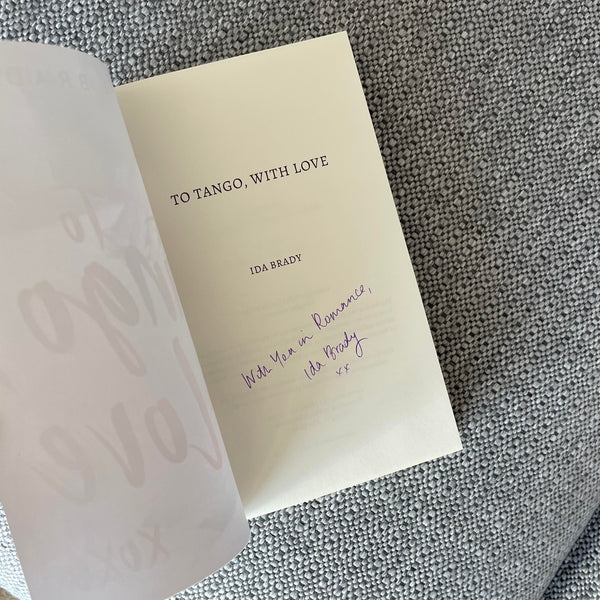 TO TANGO, WITH LOVE
IDA BRADY
With You in Romance,
Ida Brady
xx